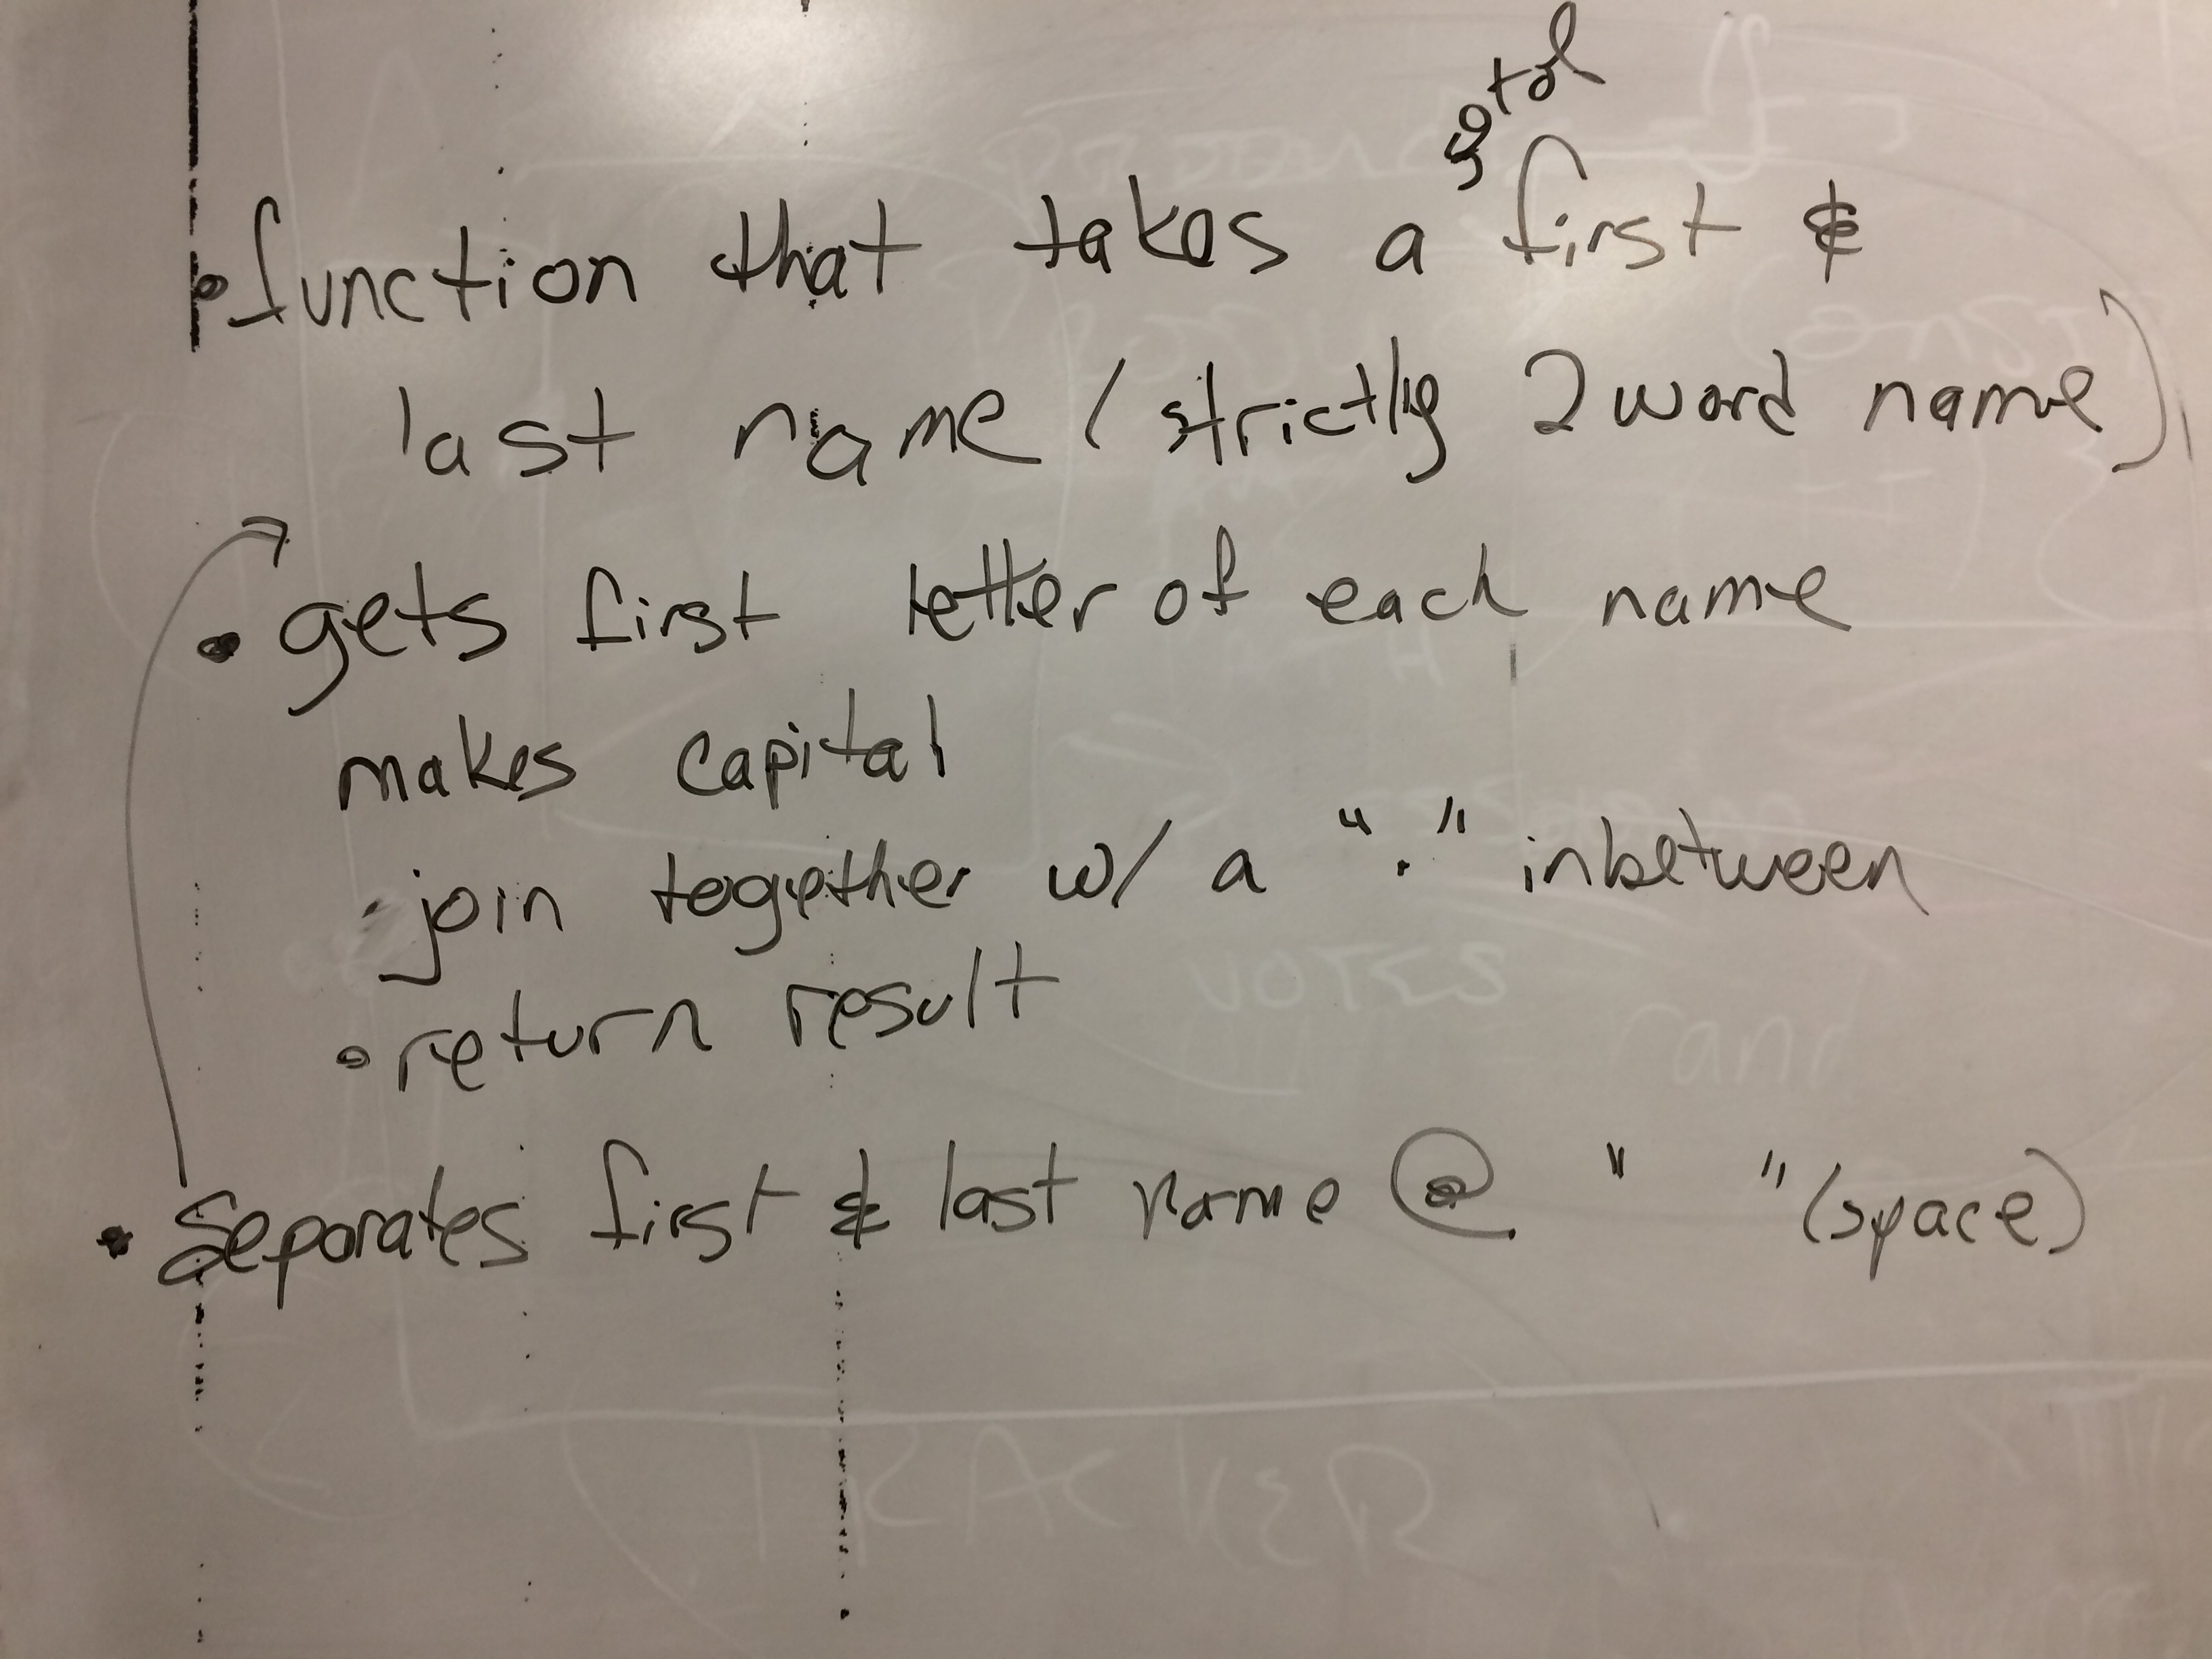 • function that takes a first &
last name (strictly 2 word name)
• gets first letter of each name
makes capital
join together w/ a "." inbetween
• return result
• Separates first & last name @ " " (space)
VOTES
TRACKER